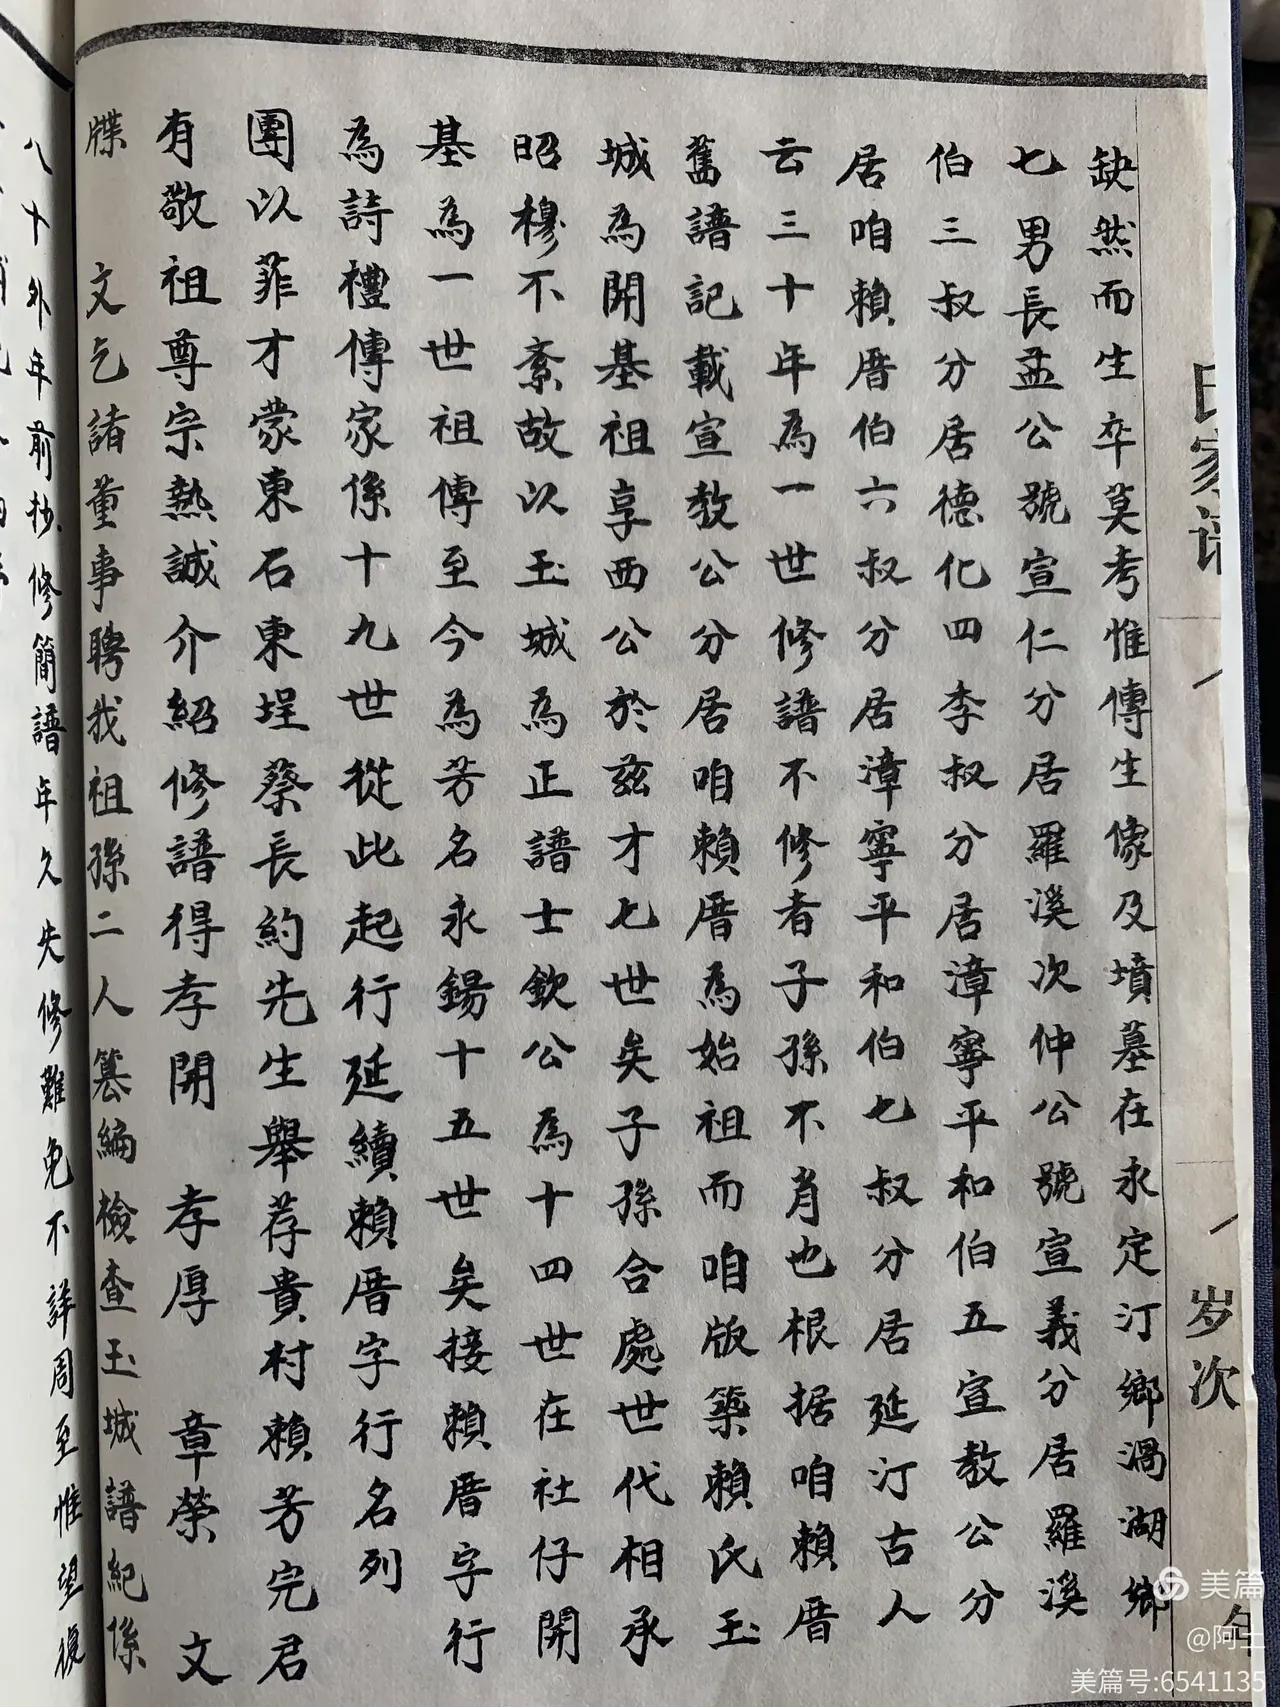 氏家谱
岁次
缺然而生卒莫考惟傳生像及墳墓在永定汀鄉湯湖鄉
七男長孟公號宣仁分居羅溪次仲公號宣義分居羅溪
伯三叔分居德化四李叔分居漳寧平和伯五宣教公分
居咱賴厝伯六叔分居漳寧平和伯七叔分居延汀古人
云三十年為一世修譜不修者子孫不肖也根据咱賴厝
舊譜記載宣教公分居咱賴厝為始祖而咱版築賴氏玉
城為開基祖享西公於茲才七世矣子孫合處世代相承
昭穆不紊故以玉城為正譜士欽公為十四世在社仔開
基為一世祖傳至今為芳名永錫十五世矣接賴厝字行
為詩禮傳家係十九世從此起行延續賴厝字行名列
團以菲才蒙東石東埕蔡長約先生舉荐貴村賴芳完君
有敬祖尊宗熱誠介紹修譜得孝開 孝厚 章榮 文
牒 文乞諸董事聘我祖孫二人篡編檢查玉城譜紀係
八十外年前抄修簡譜年久失修難免不詳周至惟望後
美篇
@阿土
美篇号:6541135